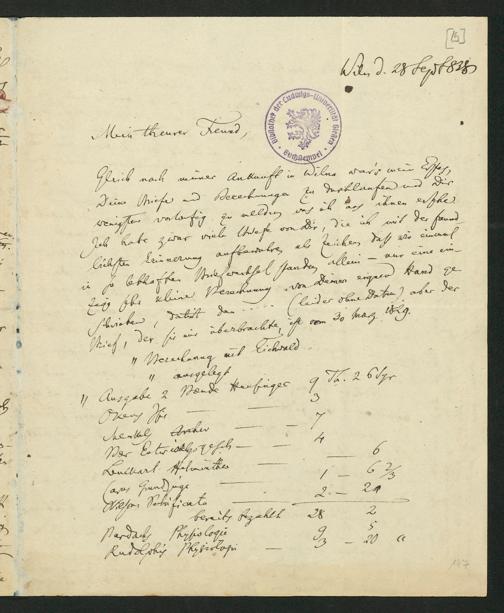 [15]
Wilna d. 28 Sept 828
Bibliothek der Ludwigs-Universität Gießen
Mein theurer Freund,
Gleich nach meiner Ankunft in Wilna war's mein
Deine Briefe und Berechnungen zu durchlaufen und Dir
wenigstens vorläufig zu melden was ich aus ihnen ersehe
Ich habe zwar viele Briefe von Dir, die ich mit der
lichsten Erinnerung aufbewahre, als Zeichen daß wir einmal
in so lebhaftem Briefwechsel standen, allein – nur eine ein-
zige sehr kleine Berechnung von Deiner eigenen Hand ge-
schrieben, datirt den ..... (leider ohne Datum) aber der
Brief, der sie mir überbrachte, ist vom 30 März
" Berechnung mit Eichwald
" ausgelegt
" Ausgabe 2 Bände Heusinger 9 Th. 26 Sgr
Okens Isis — 3
Meckels Archiv — 7
Der — 4
— 6
Carus Grundzüge — 1 — 6 2/3
2 — 24
bereits bezahlt 28 2
Burdachs Physiologie 9 5
Rudolphis Physiologie 3 — 20 "
147